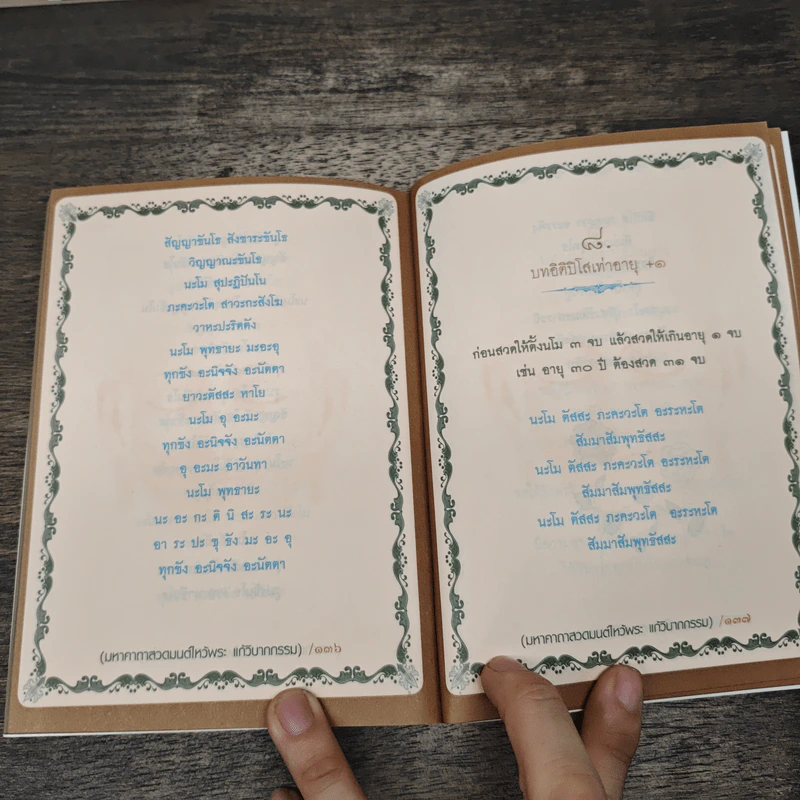 สัญญาขันโธ สังขาระขันโธ
วิญญาณะขันโธ
นะโม สุปะฏิปันโน
ภะคะวะโต สาวะกะสังโฆ
วาหะปะริตตัง
นะโม พุทธายะ มะอะอุ
ทุกขัง อะนิจจัง อะนัตตา
ยาวะตัสสะ หาโย
นะโม อุ อะมะ
ทุกขัง อะนิจจัง อะนัตตา
อุ อะมะ อาวันทา
นะโม พุทธายะ
นะ อะ กะ ติ นิ สะ ระ นะ
อา ระ ปะ ขุ ธัง มะ อะ อุ
ทุกขัง อะนิจจัง อะนัตตา
(มหาคาถาสวดมนต์ไหว้พระ แก้วิบากกรรม) /๑๓๖
๘.
บทอิติปิโสเท่าอายุ +๑
ก่อนสวดให้ตั้งนโม ๓ จบ แล้วสวดให้เกินอายุ ๑ จบ
เช่น อายุ ๓๐ ปี ต้องสวด ๓๑ จบ
นะโม ตัสสะ ภะคะวะโต อะระหะโต
สัมมาสัมพุทธัสสะ
นะโม ตัสสะ ภะคะวะโต อะระหะโต
สัมมาสัมพุทธัสสะ
นะโม ตัสสะ ภะคะวะโต อะระหะโต
สัมมาสัมพุทธัสสะ
(มหาคาถาสวดมนต์ไหว้พระ แก้วิบากกรรม) /๑๓๗